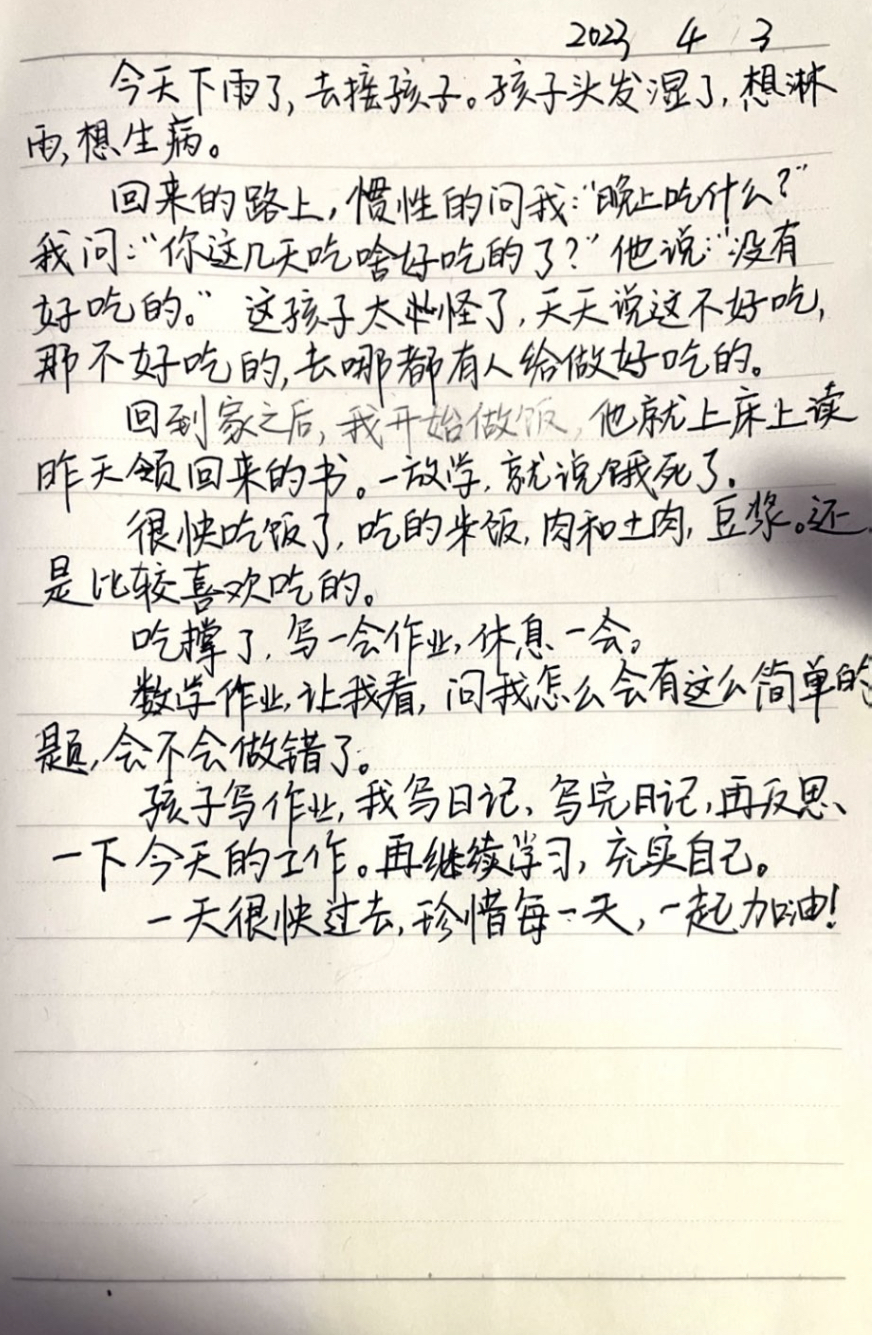 2023 4 3
今天下雨了,去接孩子。孩子头发湿了,想淋
雨,想生病。
回来的路上,惯性的问我:“晚上吃什么?”
我问:“你这几天吃啥好吃的了?”他说:“没有
好吃的。”这孩子太怪了,天天说这不好吃,
那不好吃的,去哪都有人给做好吃的。
回到家之后,我开始做饭,他就上床上读
昨天领回来的书。一放学,就说饿死了.
很快吃饭了,吃的米饭,肉和土肉,豆浆。还
是比较喜欢吃的。
吃撑了,写一会作业,休息一会。
数学作业,让我看,问我怎么会有这么简单的
题,会不会做错了。
孩子写作业,我写日记,写完日记,再反思、
一下今天的工作。再继续学习,充实自己。
一天很快过去,珍惜每一天,一起加油!